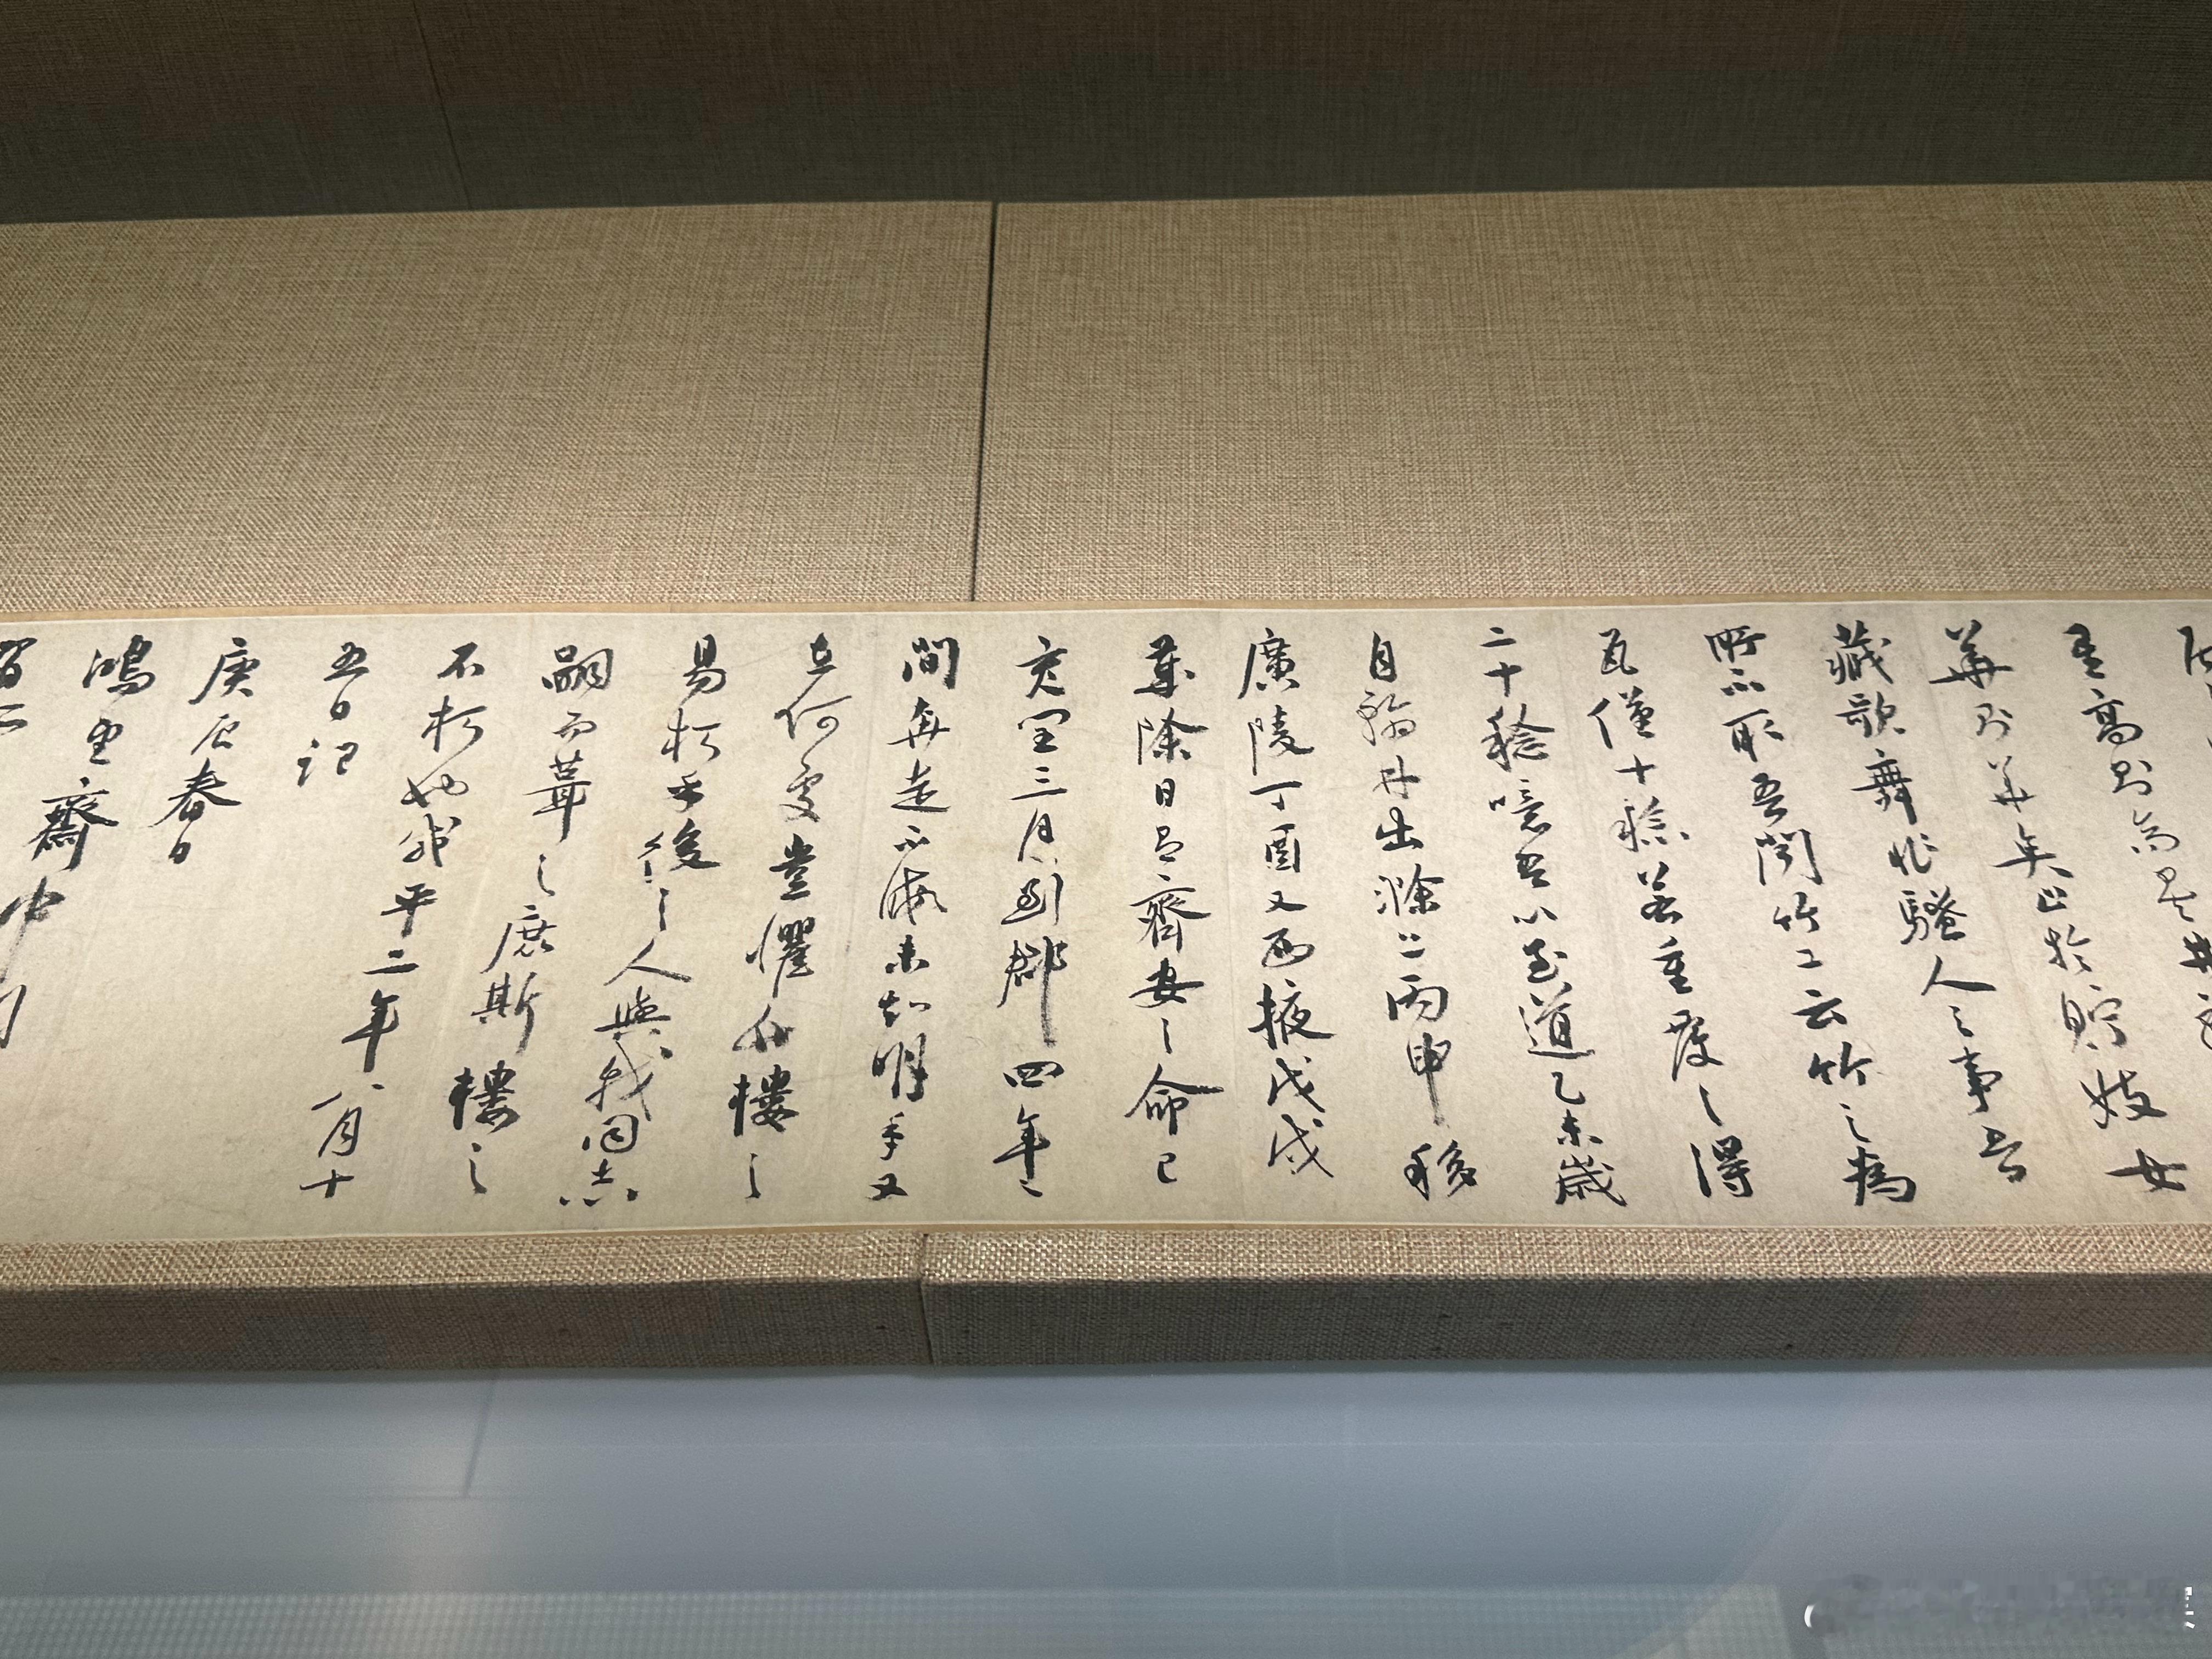 星高則高矣井
華則華矣止於貯妓女
藏歌舞非騷人之事吾
所不取吾聞竹工云竹之為
瓦僅十稔若重覆之得
二十稔噫吾以至道乙未歲
自翰林出滁上丙申移
廣陵丁酉又西掖戊戌
歲除日有齊安之命己
亥閏三月到郡四年之
間奔走不暇未知明年又
在何處豈懼竹樓之
易朽乎後之人與我同志
嗣而葺之庶斯樓之
不朽也咸平二年八月十
五日記
庚辰春日
鴻堂齋中